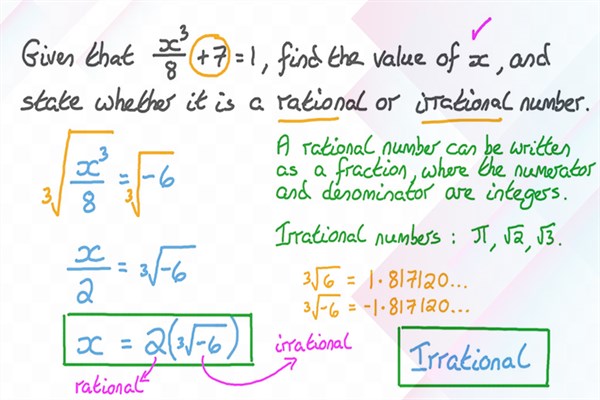 Given that x³/8 +7 = 1, find the value of x, and
state whether it is a rational or irrational number.
∛(x³/8) = ∛-6
x/2 = ∛-6
x = 2(∛-6)
rational
irrational
A rational number can be written
as a fraction, where the numerator
and denominator are integers.
Irrational numbers : π, √2, √3.
∛6 = 1.817120...
∛-6 = -1.817120...
Irrational